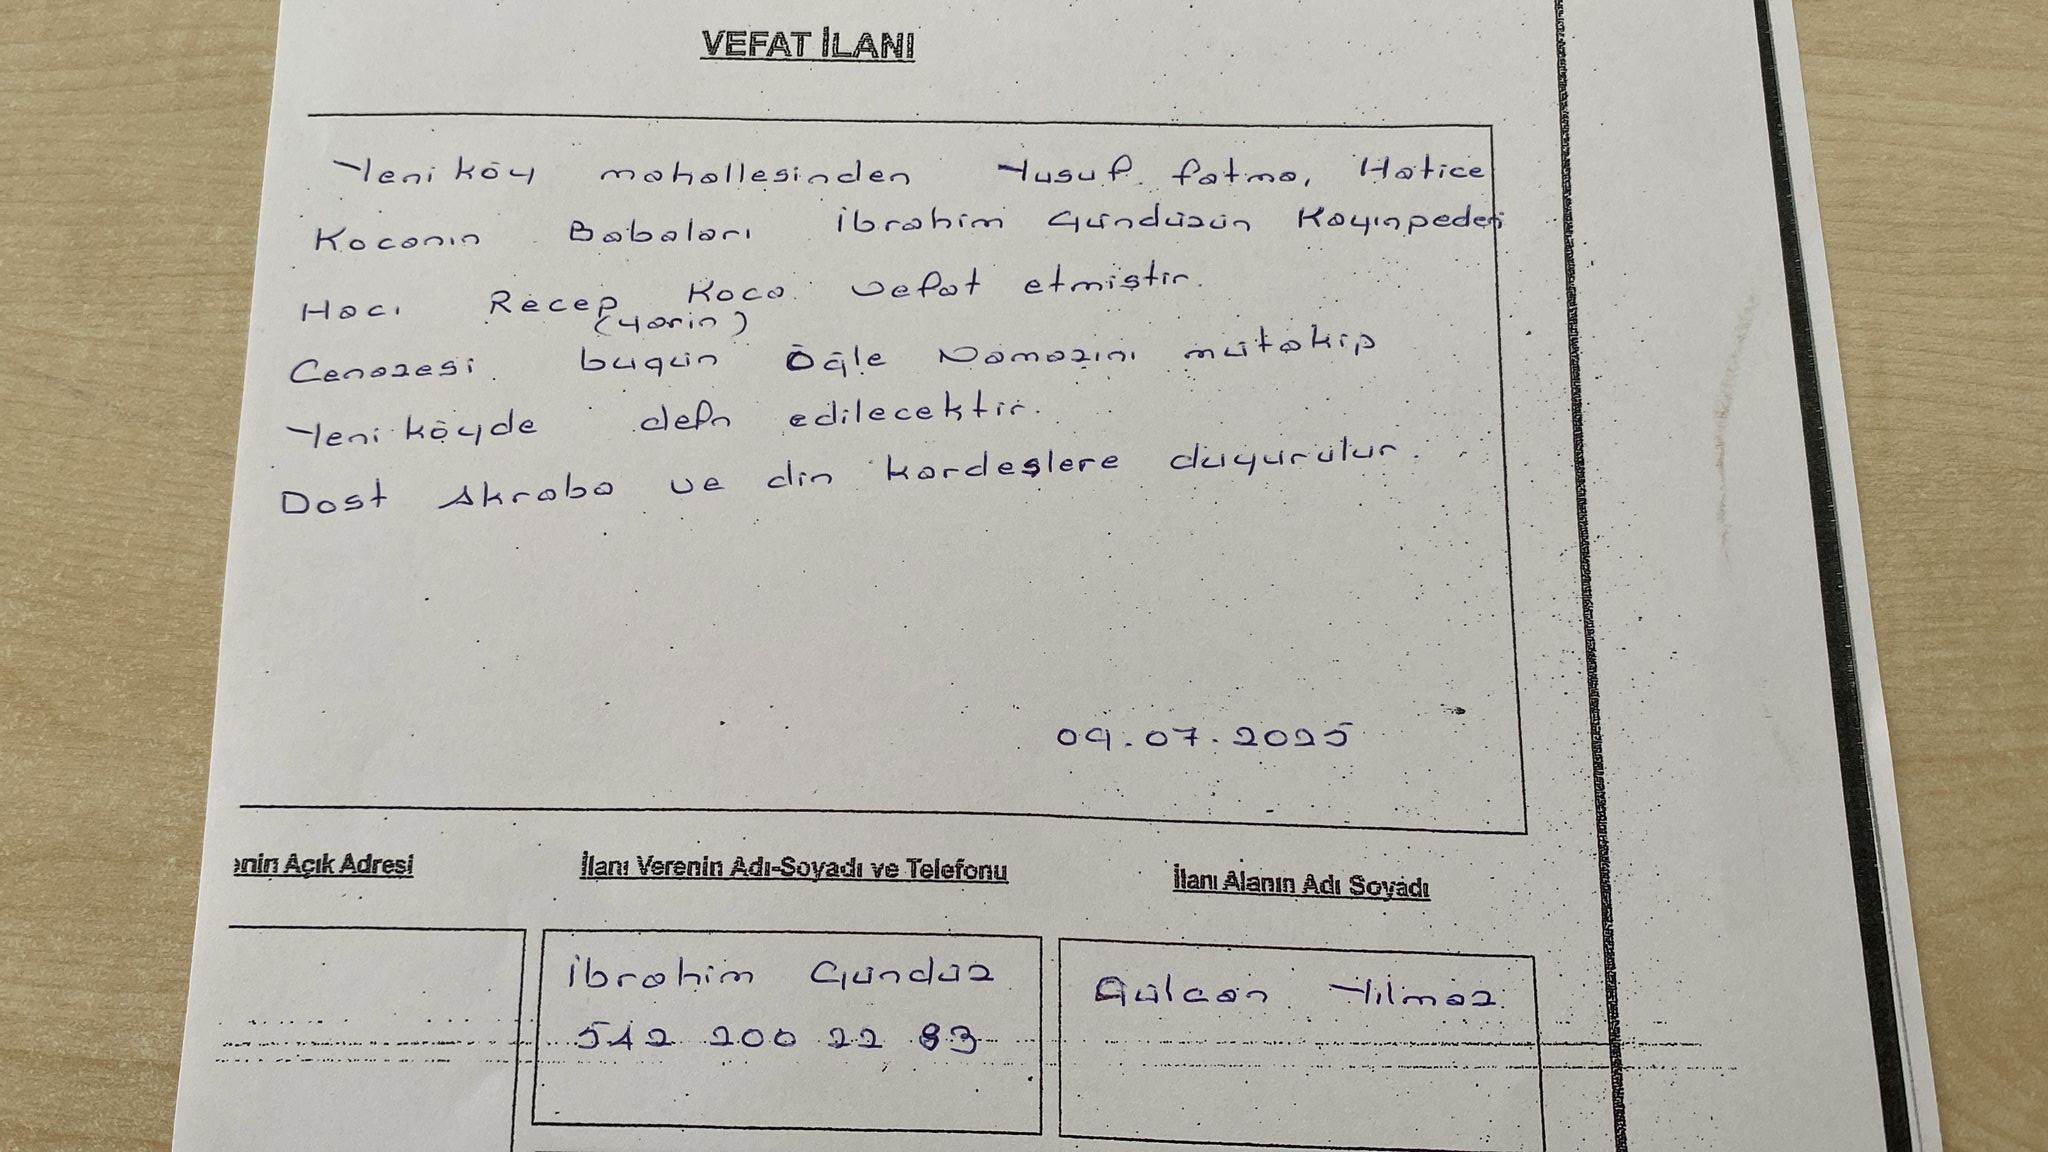 VEFAT İLANI
Yeniköy mahallesinden Yusuf. fatma, Hatice
Kocanın Babaları İbrahim Gündüzün Kayınpederi
Hacı Recep Koca vefat etmiştir.
(yarin)
Cenazesi bugün Öğle Namazını mütakip
Yeniköyde defn edilecektir.
Dost Akraba ve din kardeşlere duyurulur.
09.07.2025
enin Açık Adresi
İlanı Verenin Adı-Soyadı ve Telefonu
İlanı Alanın Adı Soyadı
İbrahim Gündüz
542 200 22 83
Gülcan Yılmaz